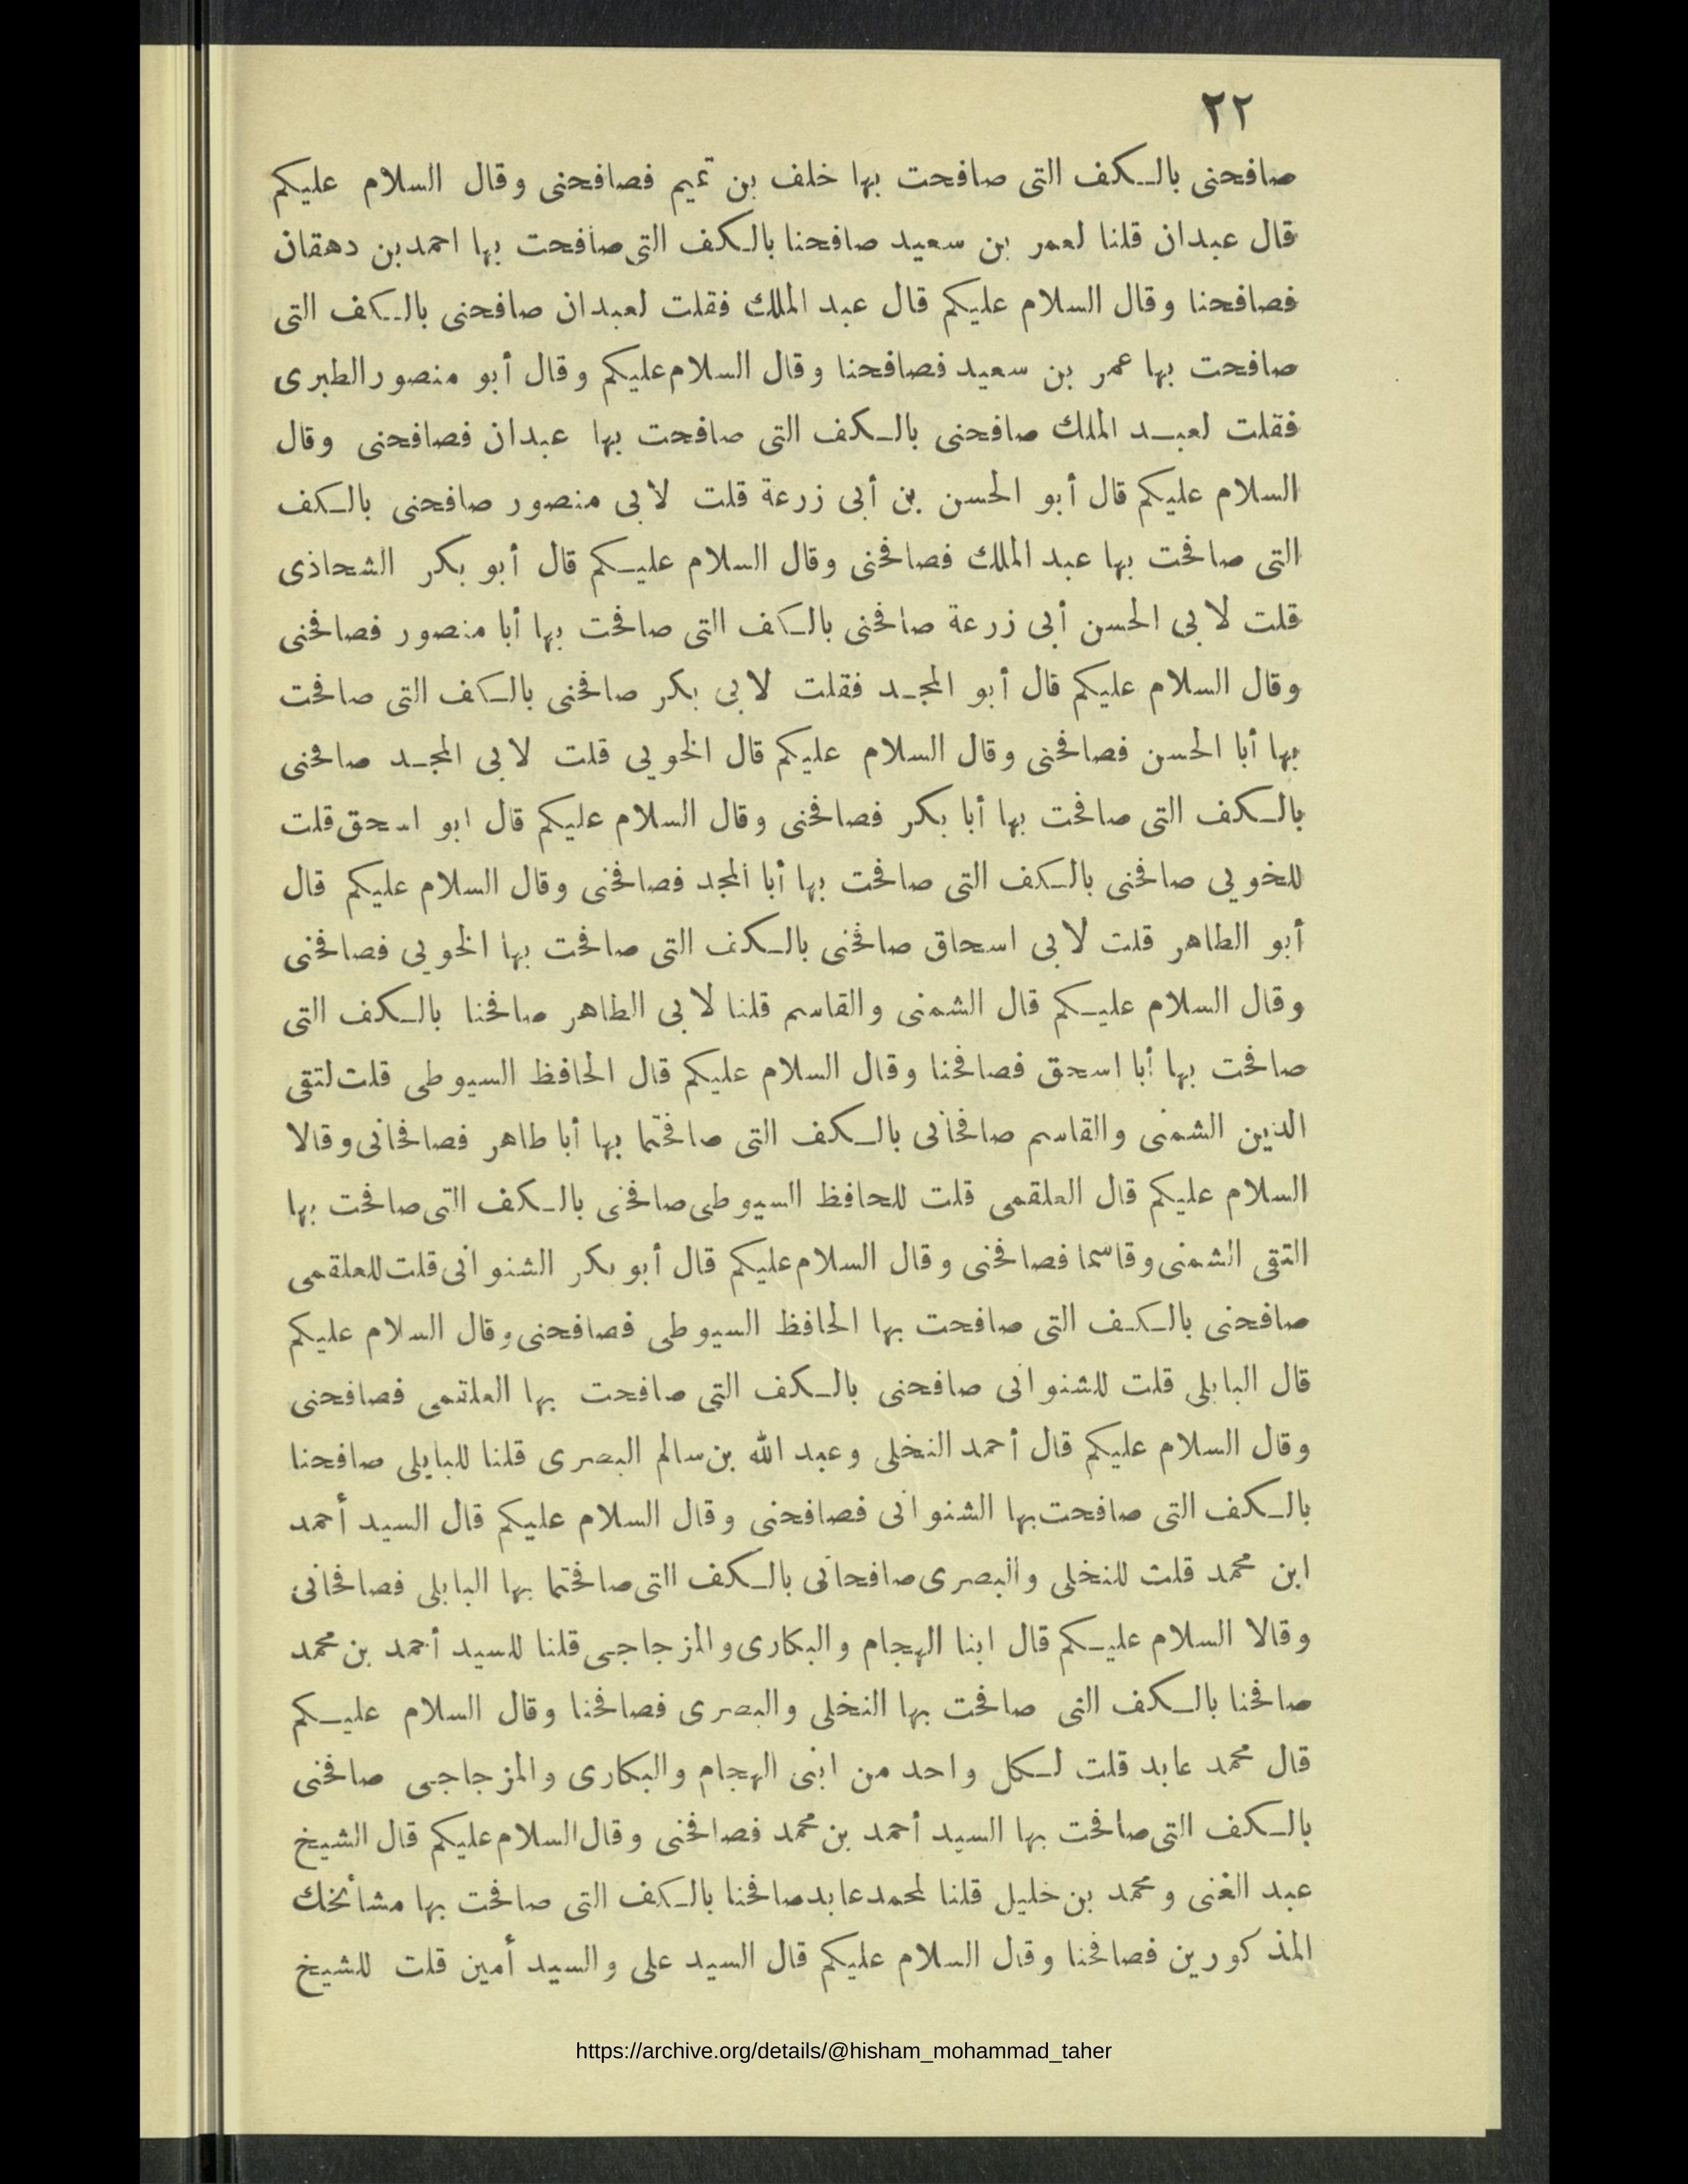 ٢٢
صافحنى بالكف التى صافحت بها خلف بن تميم فصافحنى وقال السلام عليكم
قال عبدان قلنا لعمر بن سعيد صافحنا بالكف التى صافحت بها احمد بن دهقان
فصافحنا وقال السلام عليكم قال عبد الملك فقلت لعبدان صافحنى بالكف التى
صافحت بها عمر بن سعيد فصافحنا وقال السلام عليكم وقال أبو منصور الطبرى
فقلت لعبد الملك صافحنى بالكف التى صافحت بها عبدان فصافحنى وقال
السلام عليكم قال أبو الحسن بن أبى زرعة قلت لابى منصور صافحنى بالكف
التى صافحت بها عبد الملك فصافحنى وقال السلام عليكم قال أبو بكر الشحاذى
قلت لابى الحسن أبى زرعة صافحنى بالكف التى صافحت بها أبا منصور فصافحنى
وقال السلام عليكم قال أبو المجد فقلت لابى بكر صافحنى بالكف التى صافحت
بها أبا الحسن فصافحنى وقال السلام عليكم قال الخويى قلت لابى المجد صافحنى
بالكف التى صافحت بها أبا بكر فصافحنى وقال السلام عليكم قال ابو اسحق قلت
للخويى صافحنى بالكف التى صافحت بها أبا المجد فصافحنى وقال السلام عليكم قال
أبو الطاهر قلت لابى اسحاق صافحنى بالكف التى صافحت بها الخويى فصافحنى
وقال السلام عليكم قال الشمنى والقاسم قلنا لابى الطاهر صافحنا بالكف التى
صافحت بها أبا اسحق فصافحنا وقال السلام عليكم قال الحافظ السيوطى قلت لتقى
الدين الشمنى والقاسم صافحانى بالكف التى صافحتما بها أبا طاهر فصافحانى وقالا
السلام عليكم قال العلقمى قلت للحافظ السيوطى صافحنى بالكف التى صافحت بها
التقى الشمنى وقاسما فصافحنى وقال السلام عليكم قال أبو بكر الشنوانى قلت للعلقمى
صافحنى بالكف التى صافحت بها الحافظ السيوطى فصافحنى وقال السلام عليكم
قال البابلى قلت للشنوانى صافحنى بالكف التى صافحت بها العلقمى فصافحنى
وقال السلام عليكم قال أحمد النخلى وعبد الله بن سالم البصرى قلنا للبابلى صافحنا
بالكف التى صافحت بها الشنوانى فصافحنى وقال السلام عليكم قال السيد أحمد
ابن محمد قلت للنخلى والبصرى صافحانى بالكف التى صافحتما بها البابلى فصافحانى
وقالا السلام عليكم قال ابنا الهجام والبكارى والمزجاجى قلنا للسيد أحمد بن محمد
صافحنا بالكف التى صافحت بها النخلى والبصرى فصافحنا وقال السلام عليكم
قال محمد عابد قلت لكل واحد من ابنى الهجام والبكارى والمزجاجى صافحنى
بالكف التى صافحت بها السيد أحمد بن محمد فصافحنى وقال السلام عليكم قال الشيخ
عبد الغنى ومحمد بن خليل قلنا لمحمد عابد صافحنا بالكف التى صافحت بها مشائخك
المذكورين فصافحنا وقال السلام عليكم قال السيد على والسيد أمين قلت للشيخ
https://archive.org/details/@hisham_mohammad_taher